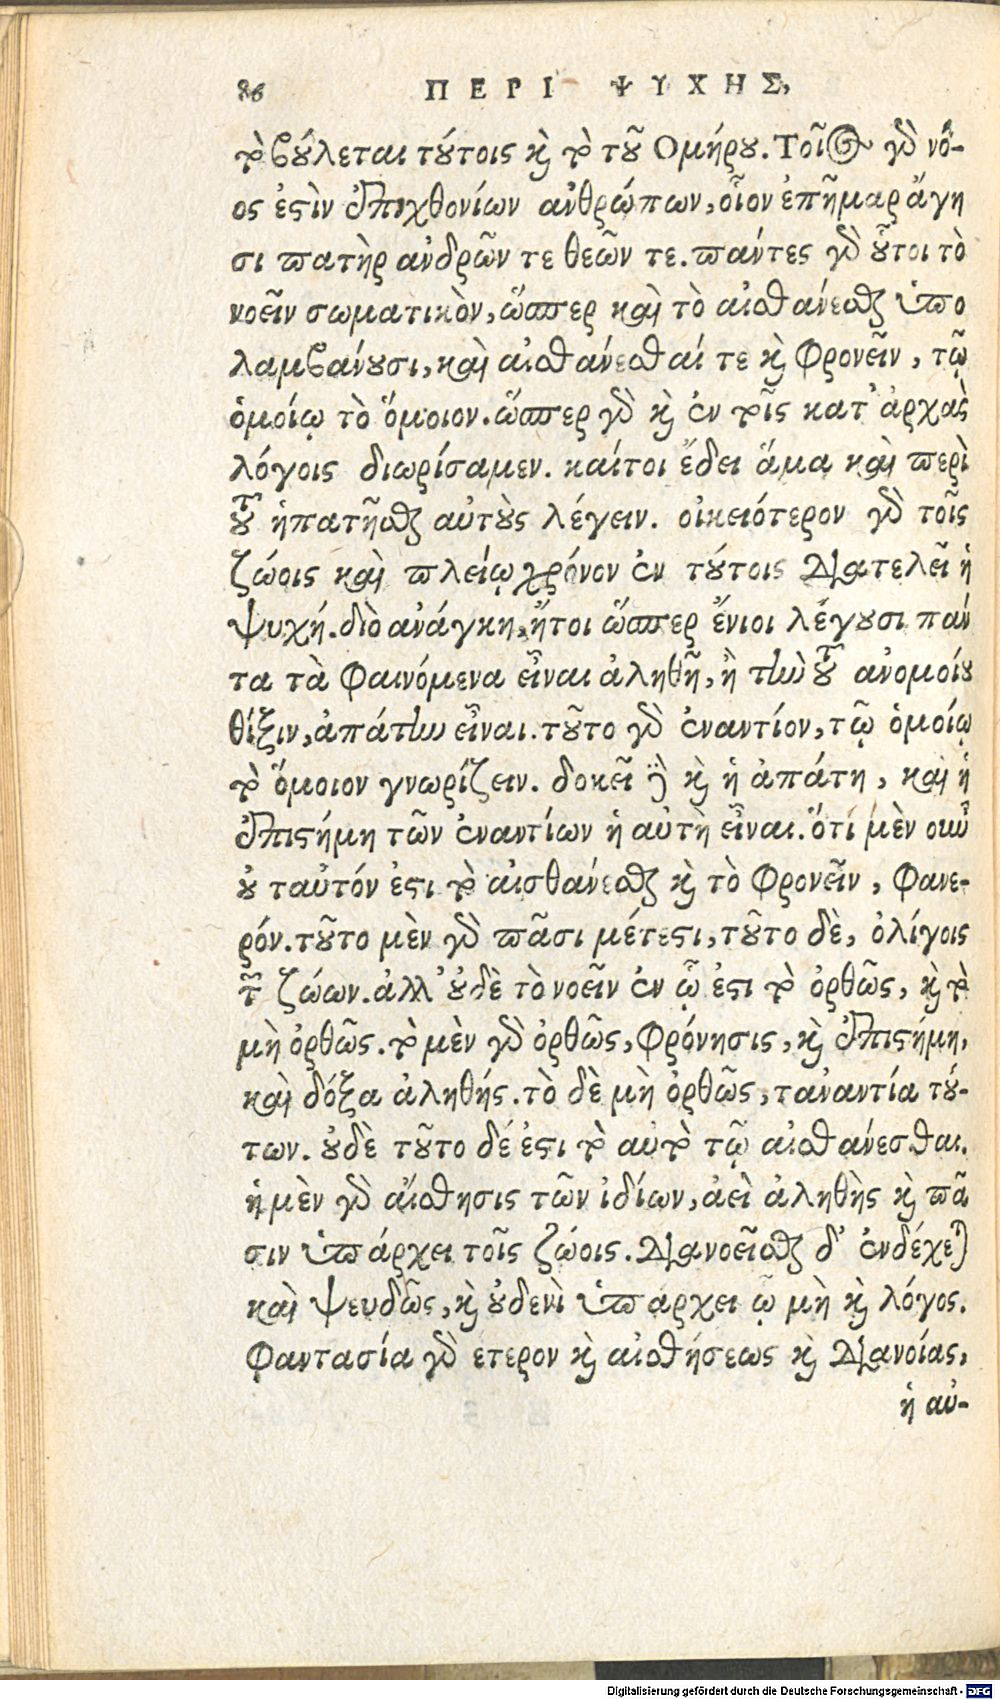 86 ΠΕΡΙ ΨΥΧΗΣ,
τὸ βούλεται τούτοις καὶ τὸ τοῦ Ομήρου. Τοῖος γὰρ νό-
ος ἐστὶν ἐπιχθονίων ἀνθρώπων, οἷον ἐπῆμαρ ἄγη
σι πατὴρ ἀνδρῶν τε θεῶν τε. πάντες γὰρ οὗτοι τὸ
νοεῖν σωματικὸν, ὥσπερ καὶ τὸ αἰσθάνεσθαι ὑπο
λαμβάνουσι, καὶ αἰσθάνεσθαί τε καὶ φρονεῖν, τῷ
ὁμοίῳ τὸ ὅμοιον. ὥσπερ γὰρ καὶ ἐν τοῖς κατ' ἀρχὰς
λόγοις διωρίσαμεν. καίτοι ἔδει ἅμα καὶ περὶ
τοῦ ἠπατῆσθαι αὐτοὺς λέγειν. οἰκειότερον γὰρ τοῖς
ζώοις καὶ πλείω χρόνον ἐν τούτοις διατελεῖ ἡ
ψυχή. διὸ ἀνάγκη, ἤτοι ὥσπερ ἔνιοι λέγουσι πάν
τα τὰ φαινόμενα εἶναι ἀληθῆ, ἢ τὴν τοῦ ἀνομοίου
θίξιν, ἀπάτην εἶναι. τοῦτο γὰρ ἐναντίον, τῷ ὁμοίῳ
τὸ ὅμοιον γνωρίζειν. δοκεῖ δὲ καὶ ἡ ἀπάτη, καὶ ἡ
ἐπιστήμη τῶν ἐναντίων ἡ αὐτὴ εἶναι. ὅτι μὲν οὖν
οὐ ταὐτόν ἐστι τὸ αἰσθάνεσθαι καὶ τὸ φρονεῖν, φανε-
ρόν. τοῦτο μὲν γὰρ πᾶσι μέτεστι, τοῦτο δὲ, ὀλίγοις
τῶν ζώων. ἀλλ' οὐδὲ τὸ νοεῖν ἐν ᾧ ἐστι τὸ ὀρθῶς, καὶ τὸ
μὴ ὀρθῶς. τὸ μὲν γὰρ ὀρθῶς, φρόνησις, καὶ ἐπιστήμη,
καὶ δόξα ἀληθής. τὸ δὲ μὴ ὀρθῶς, τἀναντία τού-
των. οὐδὲ τοῦτο δέ ἐστι τὸ αὐτὸ τῷ αἰσθάνεσθαι.
ἡ μὲν γὰρ αἴσθησις τῶν ἰδίων, ἀεὶ ἀληθὴς καὶ πᾶ
σιν ὑπάρχει τοῖς ζώοις. διανοεῖσθαι δ' ἐνδέχεται
καὶ ψευδῶς, καὶ οὐδενὶ ὑπάρχει ᾧ μὴ καὶ λόγος.
φαντασία γὰρ ἕτερον καὶ αἰσθήσεως καὶ διανοίας,
ἡ αὐ-
Digitalisierung gefördert durch die Deutsche Forschungsgemeinschaft - DFG